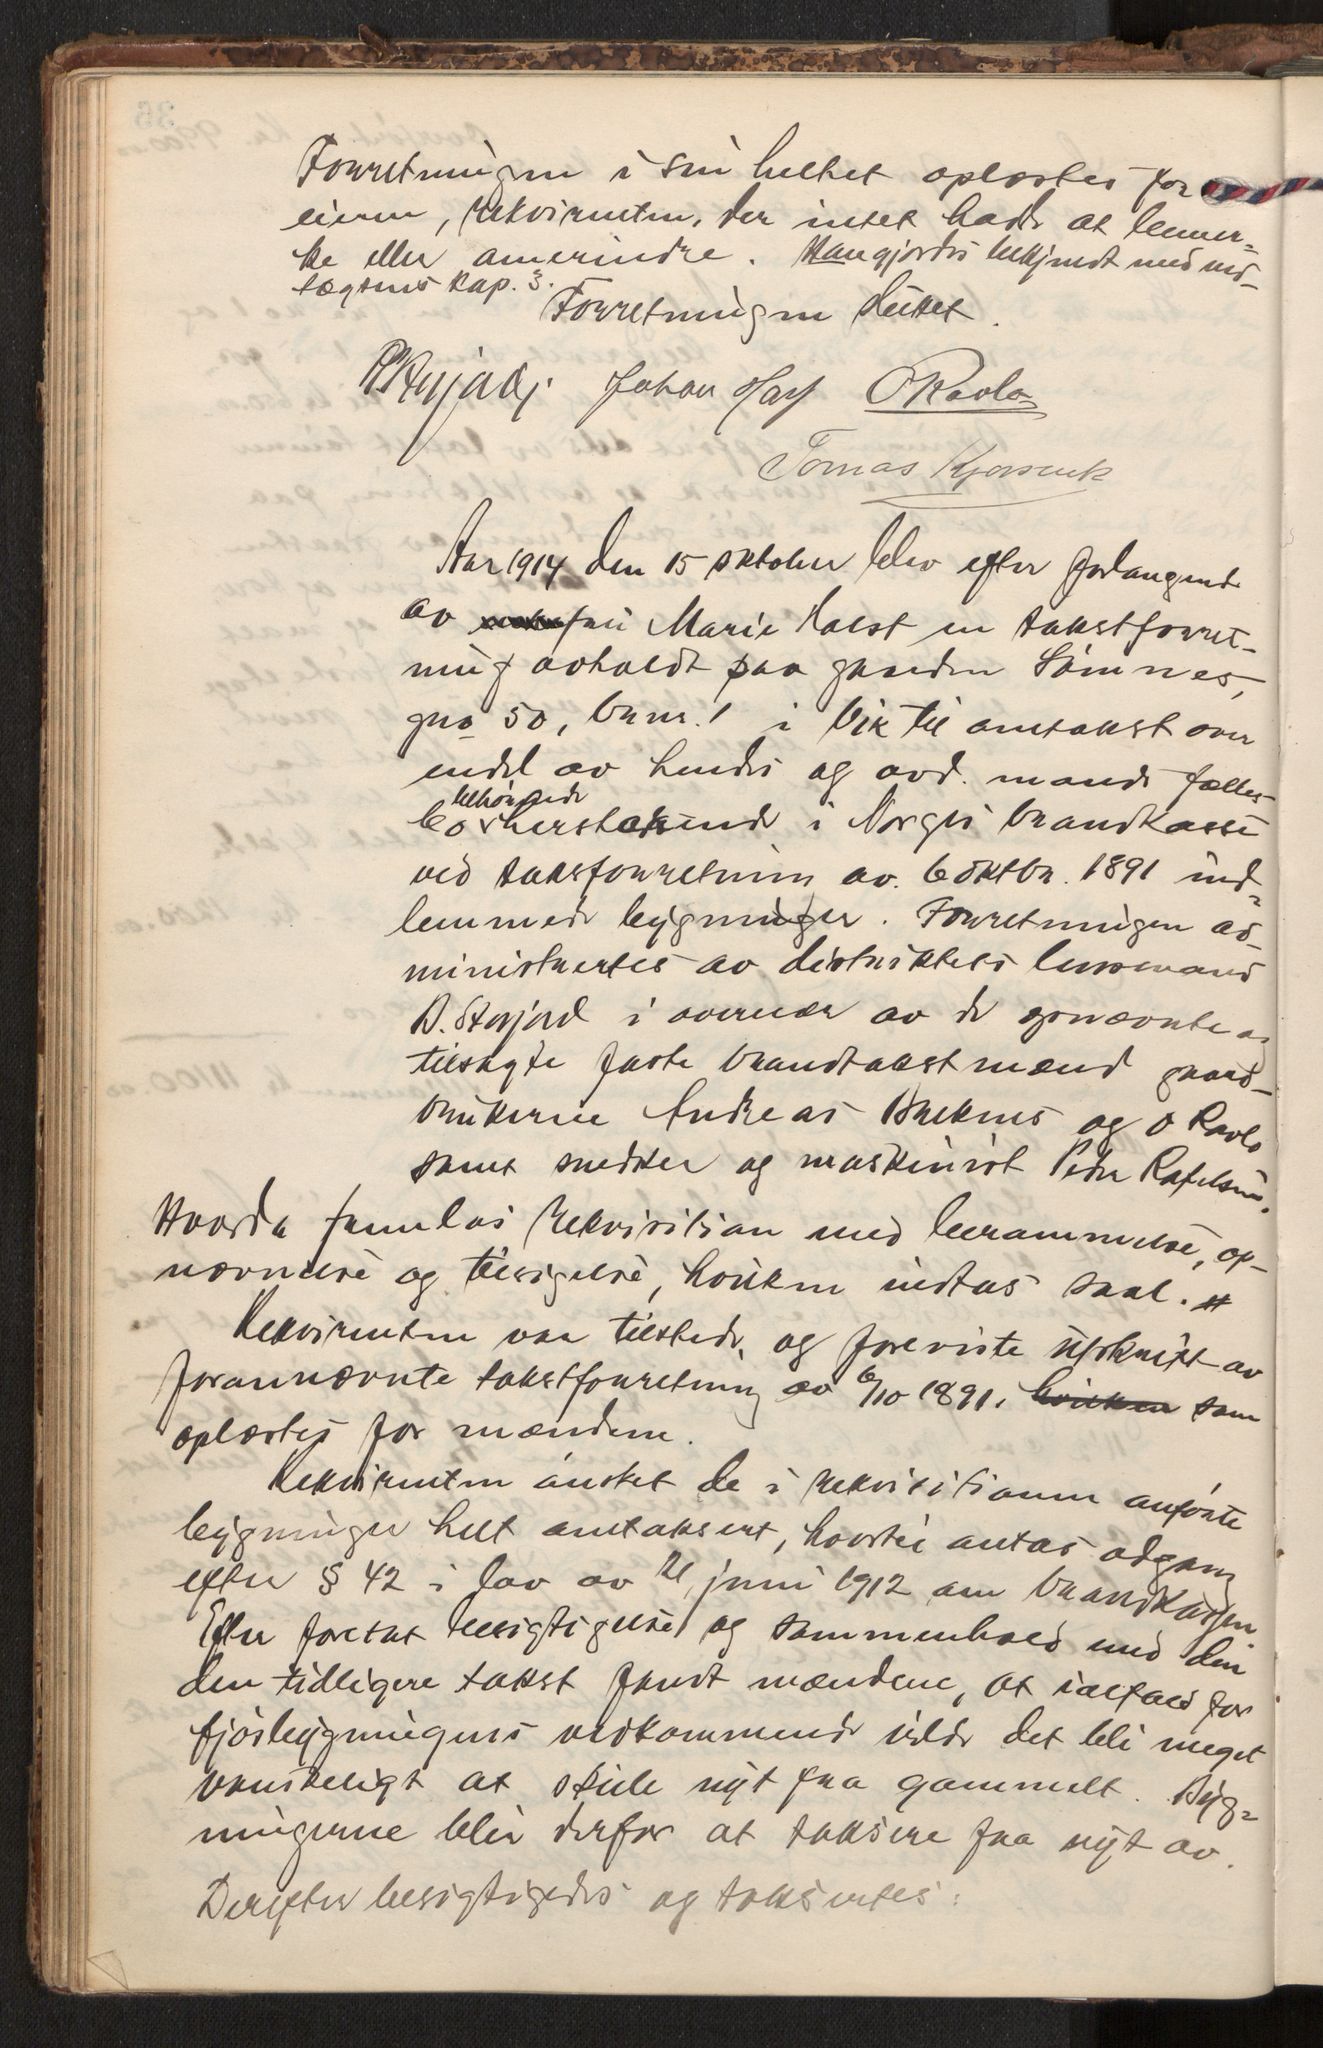 Forretningen i sin helhet oplæstes for
eieren, rekvirenten, der intet hadde at bemer-
ke eller anerindre. Han gjordes bekjendt med ved-
tægtens kap. 3.
Forretningen sluttet.
Johan O Ravlo
Tomas
Aar 1914 den 15 oktober blev efter forlangende
av fru Marie Holst en takstforret-
ning avholdt paa gaarden Sömnes,
gno 50, brnr. 1 i Vik til omtakst over
endel av hendes og avd. mands fælles
bo tilhörende i Norges brandkasse
ved taksforretning av 6 oktbr. 1891 ind-
lemmede bygninger. Forretningen ad-
ministrertes av distriktets lensmand
B. Storjord i overvær av de opnævnte og
tilsagte faste brandtakstmænd gaard-
brukerne Andreas Breknes og O Ravlo
samt snedker og maskinist Peder Rafelsen.
Hvorda fremlas rekvisition med berammelse, op-
nævnelse og tilsigelse, hvilken indtas saal. #
Rekvirenten var tilstede, og foreviste utskrift av
forannævnte takstforretning av 6/10 1891, hvilken som
oplæstes for mændene.
Rekvirenten ønsket de i rekvisitionen anförte
bygninger helt omtaksert, hvortil antas adgang
efter § 42 i lov av 21 juni 1912 om brandkassen.
Efter foretat besigtigelse og sammenhold med den
den tidligere takst fandt mændene, at ialfald for
fjösbygningens vedkommende vilde det bli meget
vanskeligt at skille nyt fra gammelt. Byg-
ningerne blir derfor at taksere fra nyt av.
Derefter besigtigedes og taksertes: